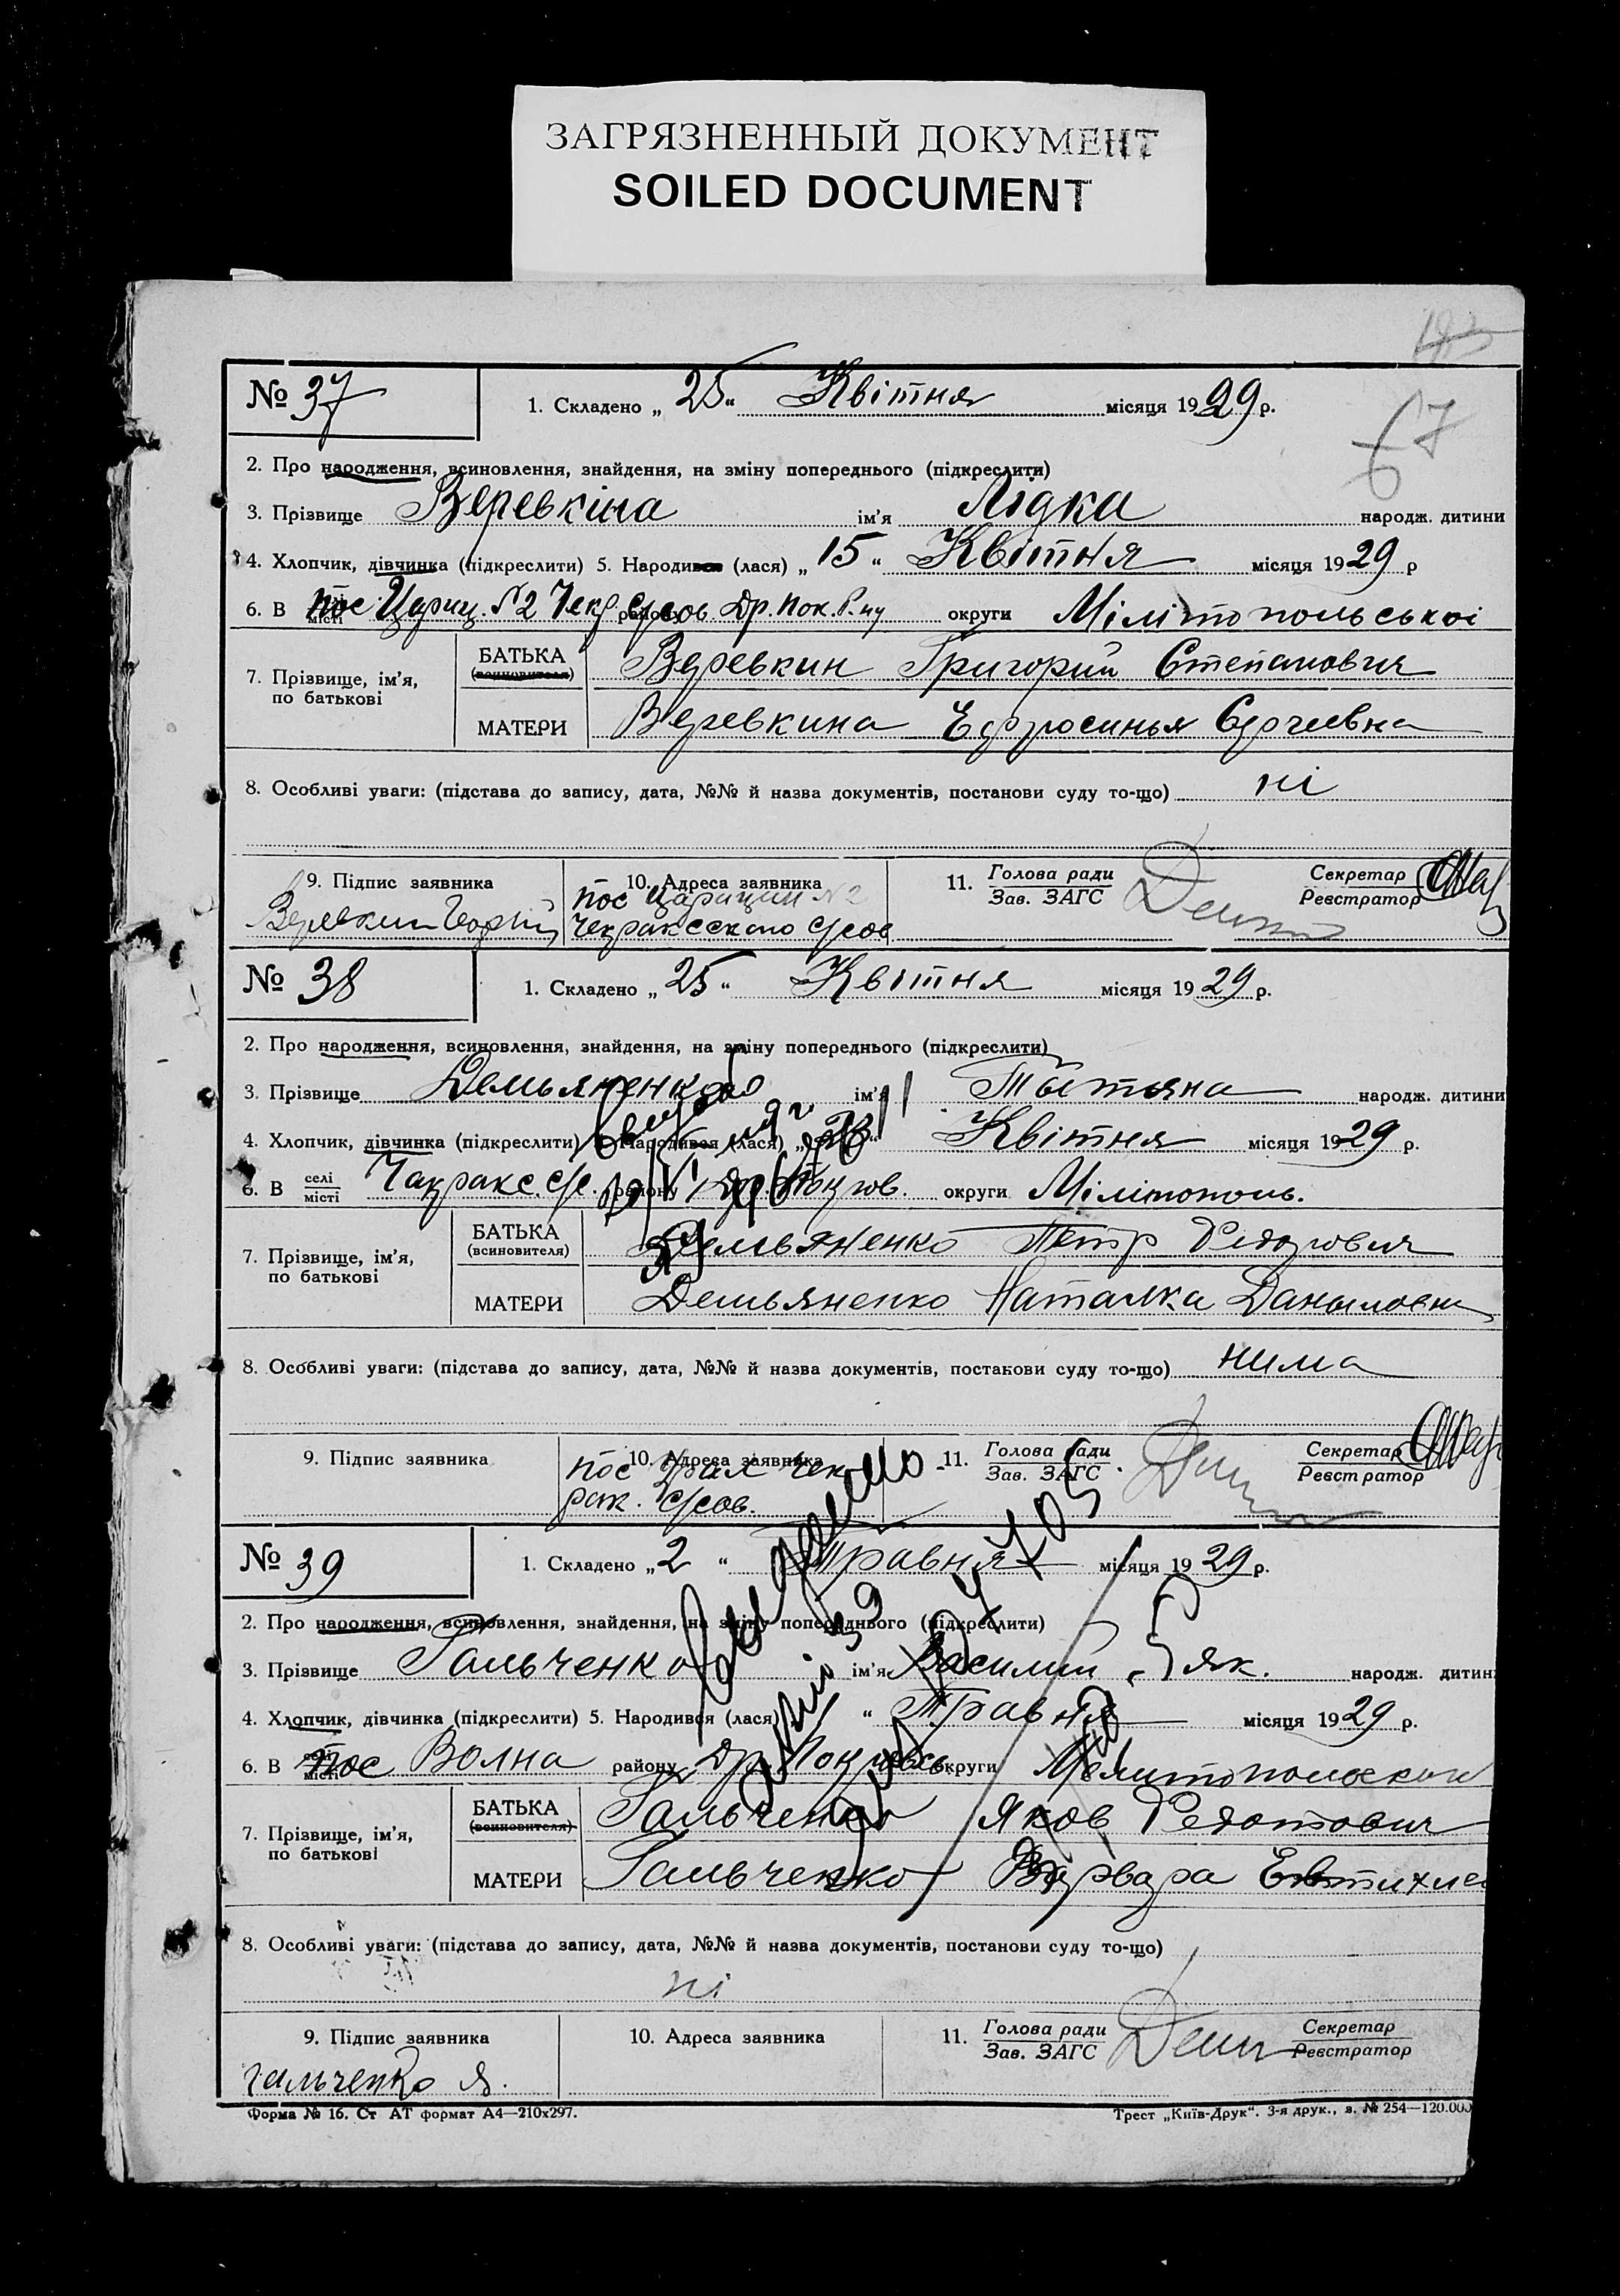 ЗАГРЯЗНЕННЫЙ ДОКУМЕНТ
SOILED DOCUMENT
67
№ 37
1. Складено „ 25 “ Квітня місяця 1929 р.
2. Про народження, всиновлення, знайдення, на зміну попереднього (підкреслити)
3. Прізвище Веревкіна ім'я Лідка народж. дитини
4. Хлопчик, дівчинка (підкреслити) 5. Народився (лася) „ 15 “ Квітня місяця 1929 р
6. В пос Цариц. №2 Чекр. с/сов Др. Пок. Р-ну округи Мілітопольськоі
7. Прізвище, ім'я, по батькові
БАТЬКА (всиновителя) Веревкин Григорий Степанович
МАТЕРИ Веревкина Ефросинья Сергеевна
8. Особливі уваги: (підстава до запису, дата, №№ й назва документів, постанови суду то-що) ні
9. Підпис заявника
10. Адреса заявника
пос Царицин №2
Чекракского с/сов
11. Голова ради
Зав. ЗАГС
Секретар
Реєстратор
№ 38
1. Складено „ 25 “ Квітня місяця 1929 р.
2. Про народження, всиновлення, знайдення, на зміну попереднього (підкреслити)
3. Прізвище Демьяненко ім'я Татьяна народж. дитини
4. Хлопчик, дівчинка (підкреслити) 5. Народився (лася) „ “ Квітня місяця 1929 р.
6. В селі місті Чакракс. с/с. району Др. Покров. округи Мілітополь.
7. Прізвище, ім'я, по батькові
БАТЬКА (всиновителя) Демьяненко Петр Федорович
МАТЕРИ Демьяненко Наталка Даныловна
8. Особливі уваги: (підстава до запису, дата, №№ й назва документів, постанови суду то-що) нима
9. Підпис заявника
10. Адреса заявника
пос Урал Чек
рак. с/сов.
11. Голова ради
Зав. ЗАГС
Секретар
Реєстратор
№ 39
1. Складено „ 2 “ Травня місяця 1929 р.
2. Про народження, всиновлення, знайдення, на зміну попереднього (підкреслити)
3. Прізвище Гальченко ім'я Василий Як. народж. дитини
4. Хлопчик, дівчинка (підкреслити) 5. Народився (лася) “ Травня місяця 1929 р.
6. В пос Волна району Др. Покровськ. округи Мелитопольскои
7. Прізвище, ім'я, по батькові
БАТЬКА (всиновителя) Гальченко Яков Федотович
МАТЕРИ Гальченко Варвара Евтихие
8. Особливі уваги: (підстава до запису, дата, №№ й назва документів, постанови суду то-що)
ні
9. Підпис заявника
Гальченко Я.
10. Адреса заявника
11. Голова ради
Зав. ЗАГС
Секретар
Реєстратор
Форма № 16. Ст АТ формат А4—210х297.
Трест „Київ-Друк“. 3-я друк., з. № 254—120.000